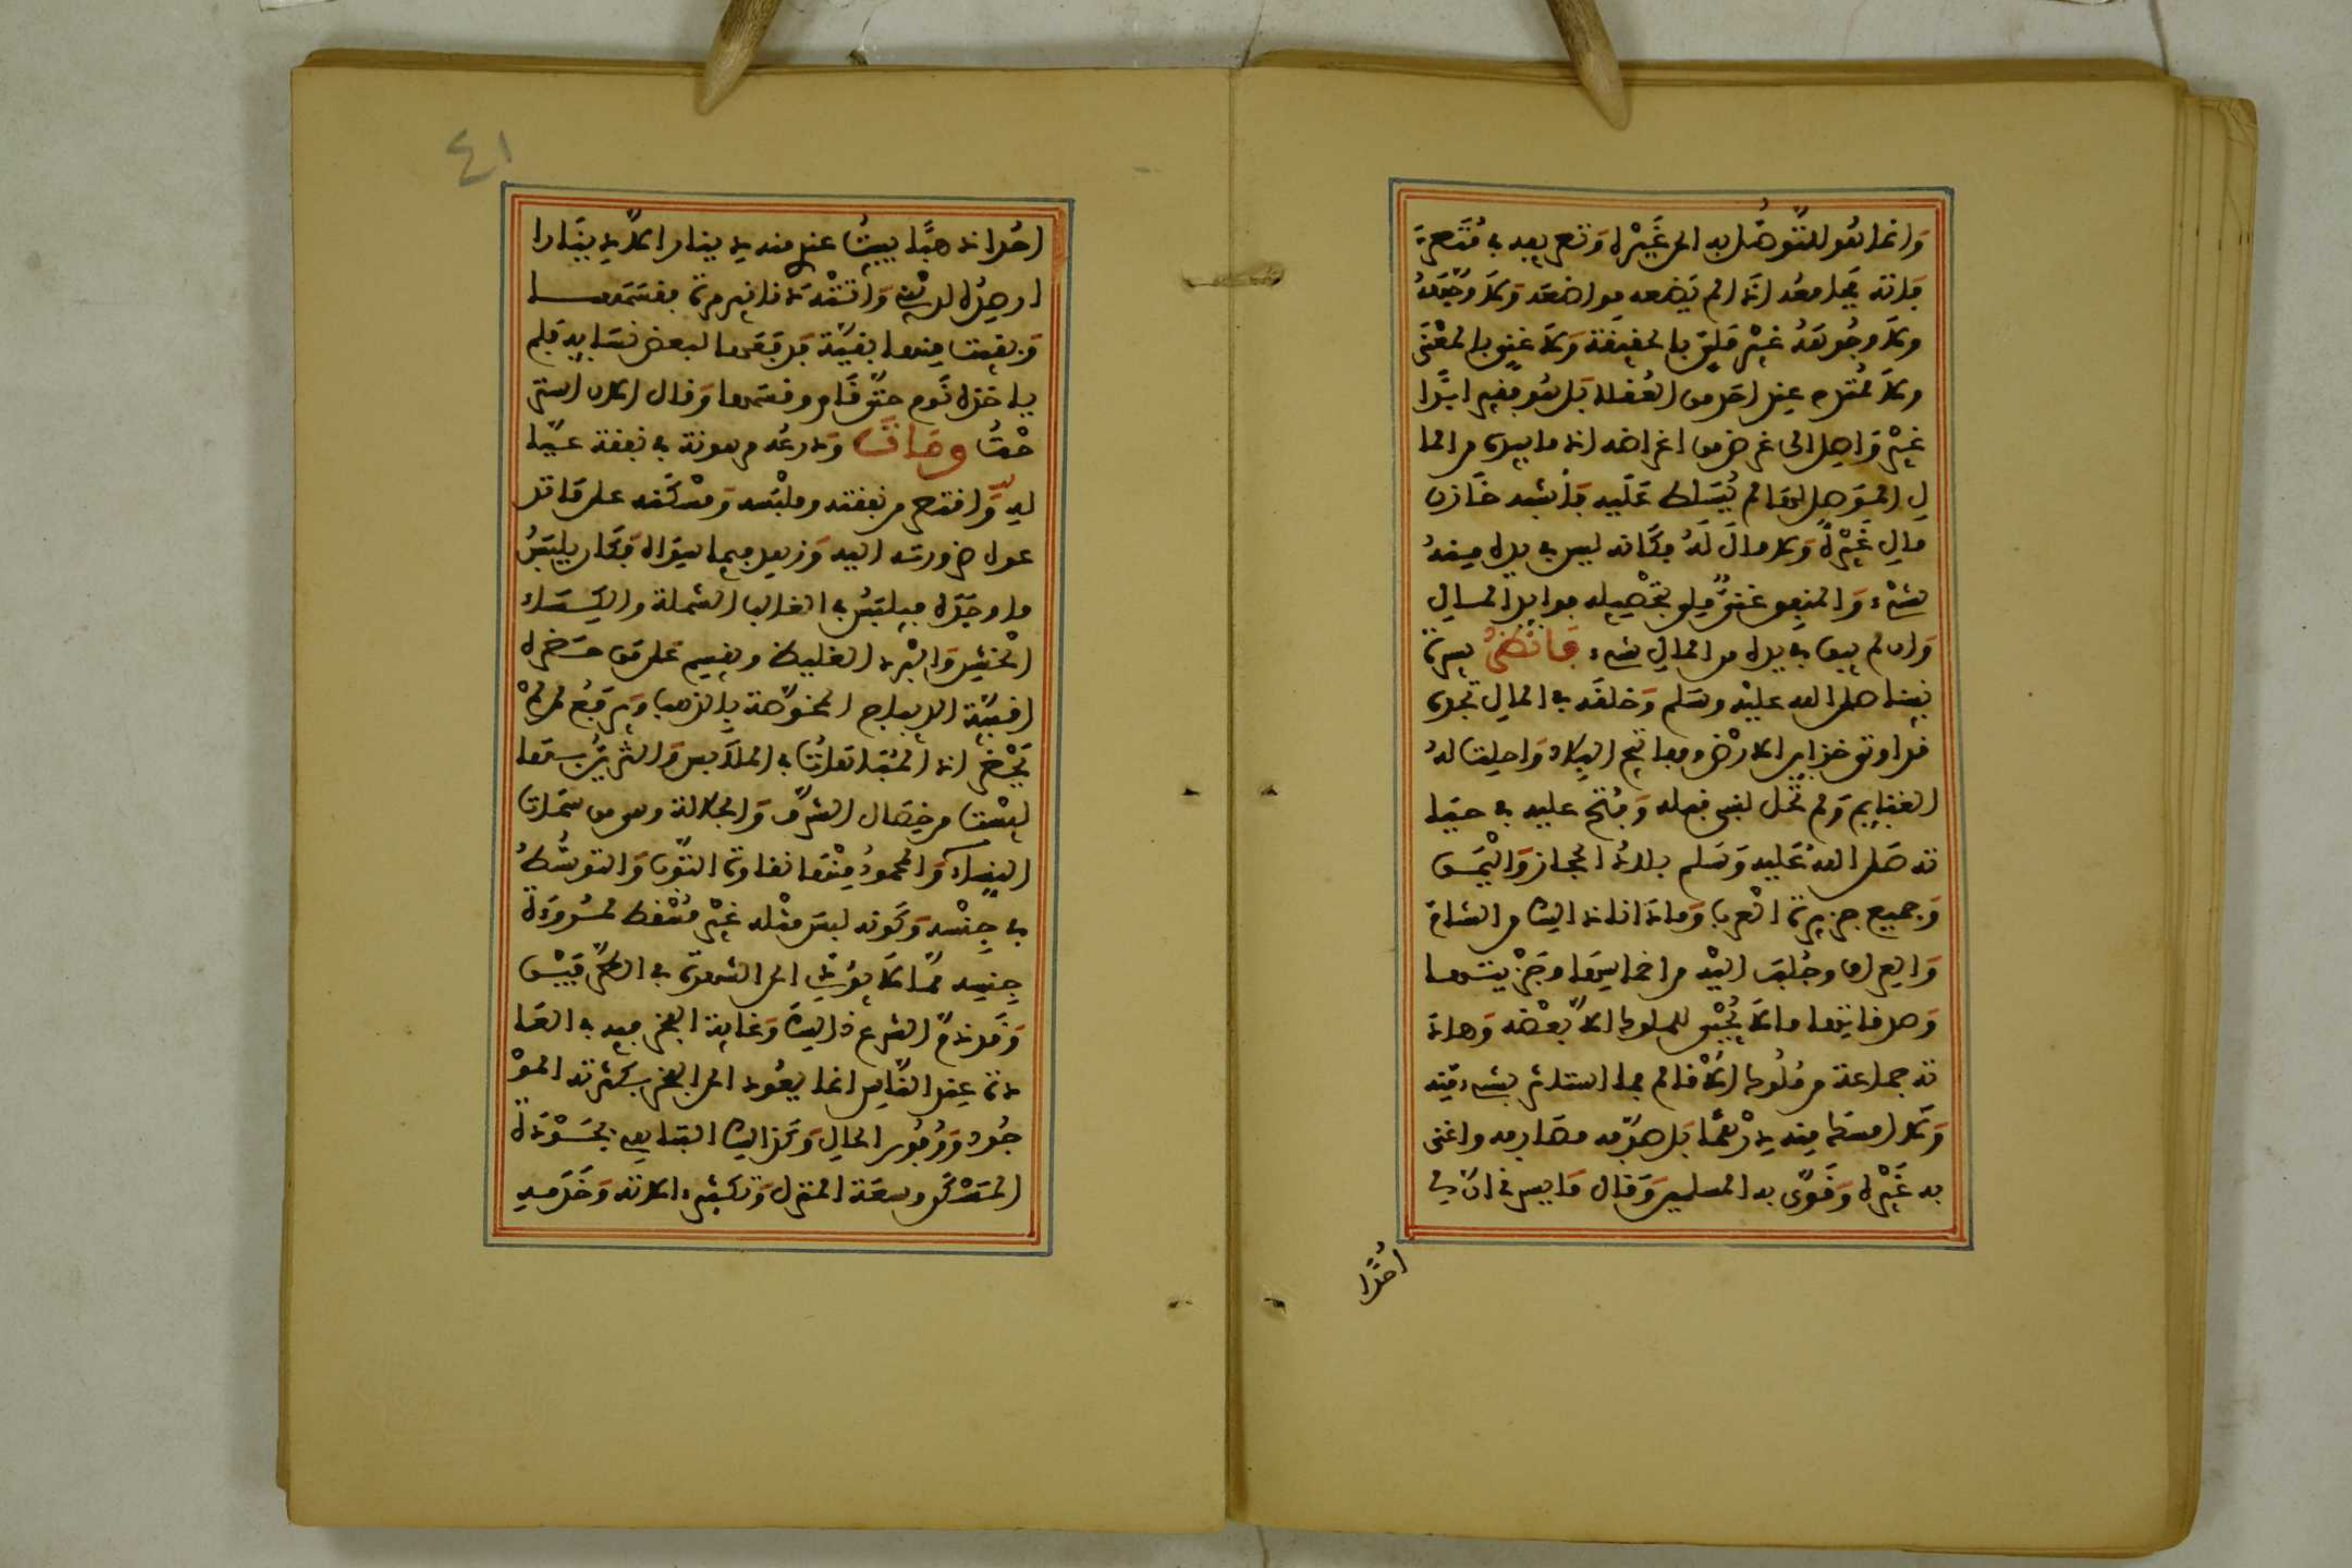 وانما هو للتوصل به الى غيره وتصريفه في متصرف
فاته فجامعه اذا لم يضعه مواضعه ولا وجهه
ولا وجوهه غير ملي بالحقيقة ولا غني بالمعنى
ولا ممتدح عند احد من العقلاء بل هو فقير ابدا
غير واصل الى غرض من اغراضه اذ ما بيده من الما
ل الموصل لها لم يسلط عليه فاشبه خازن
مال غيره ولا مال له فكانه ليس في يده منه
شيء والمنفق غني ملي بتحصيله فوايد المال
وان لم يبق في يده من المال شيء فانظر سيرة
نبينا صلى الله عليه وسلم وخلقه في المال تجده
قد اوتي خزاين الارض ومفاتيح البلاد واحلت له
الغنايم ولم تحل لنبي قبله وفتح عليه في حيا
ته صلى الله عليه وسلم بلاد الحجاز واليمن
وجميع جزيرة العرب وما دانا ذالك من الشام
والعراق وجلبت اليه من اخماسها وجزيتها
وصدقاتها ما لا يجبى للملوك الا بعضه وهاد
ته جماعة من ملوك الاقالم فما استاثر بشيء منه
ولا امسك منه درهما بل صرفه مصارفه واغنى
به غيره وقوى به المسلمين وقال ما يسرني ان لي
احدا
٤١
احدا ذهبا يبيت عندي منه دينار الا دينارا
ارصده لدين واتته دنانير مرة فقسمها
وبقيت منها بقية فدفعها لبعض نسايه فلم
ياخذه نوم حتى قام وقسمها وقال الان استر
حت ومات ودرعه مرهونة في نفقة عيا
له واقتصر من نفقته وملبسه ومسكنه على ما تد
عوه ضرورته اليه وزهد فيما سواه فكان يلبس
ما وجده فيلبس في الغالب الشملة والكساء
الخشن والبرد الغليظ ويقسم على من حضره
اقبية الديباج المخوصة بالذهب ويرفع لمن لم
يحضر اذ المباهاة في الملابس والتزين بها
ليست من خصال الشرف والجلالة وهي من سمات
النساء والمحمود منها نقاوة الثوب والتوسط
في جنسه وكونه لبس مثله غير مسقط لمروءة
جنسه مما لا يؤدي الى الشهرة في الطرفين
وقد ذم الشرع ذالك وغاية الفخر فيه في العا
دة عند الناس انما يعود الى الفخر بكثرة المو
جود ووفور الحال وكذالك التباهي بجودة
المسكن وسعة المنزل وتكثير الاته وخدمه